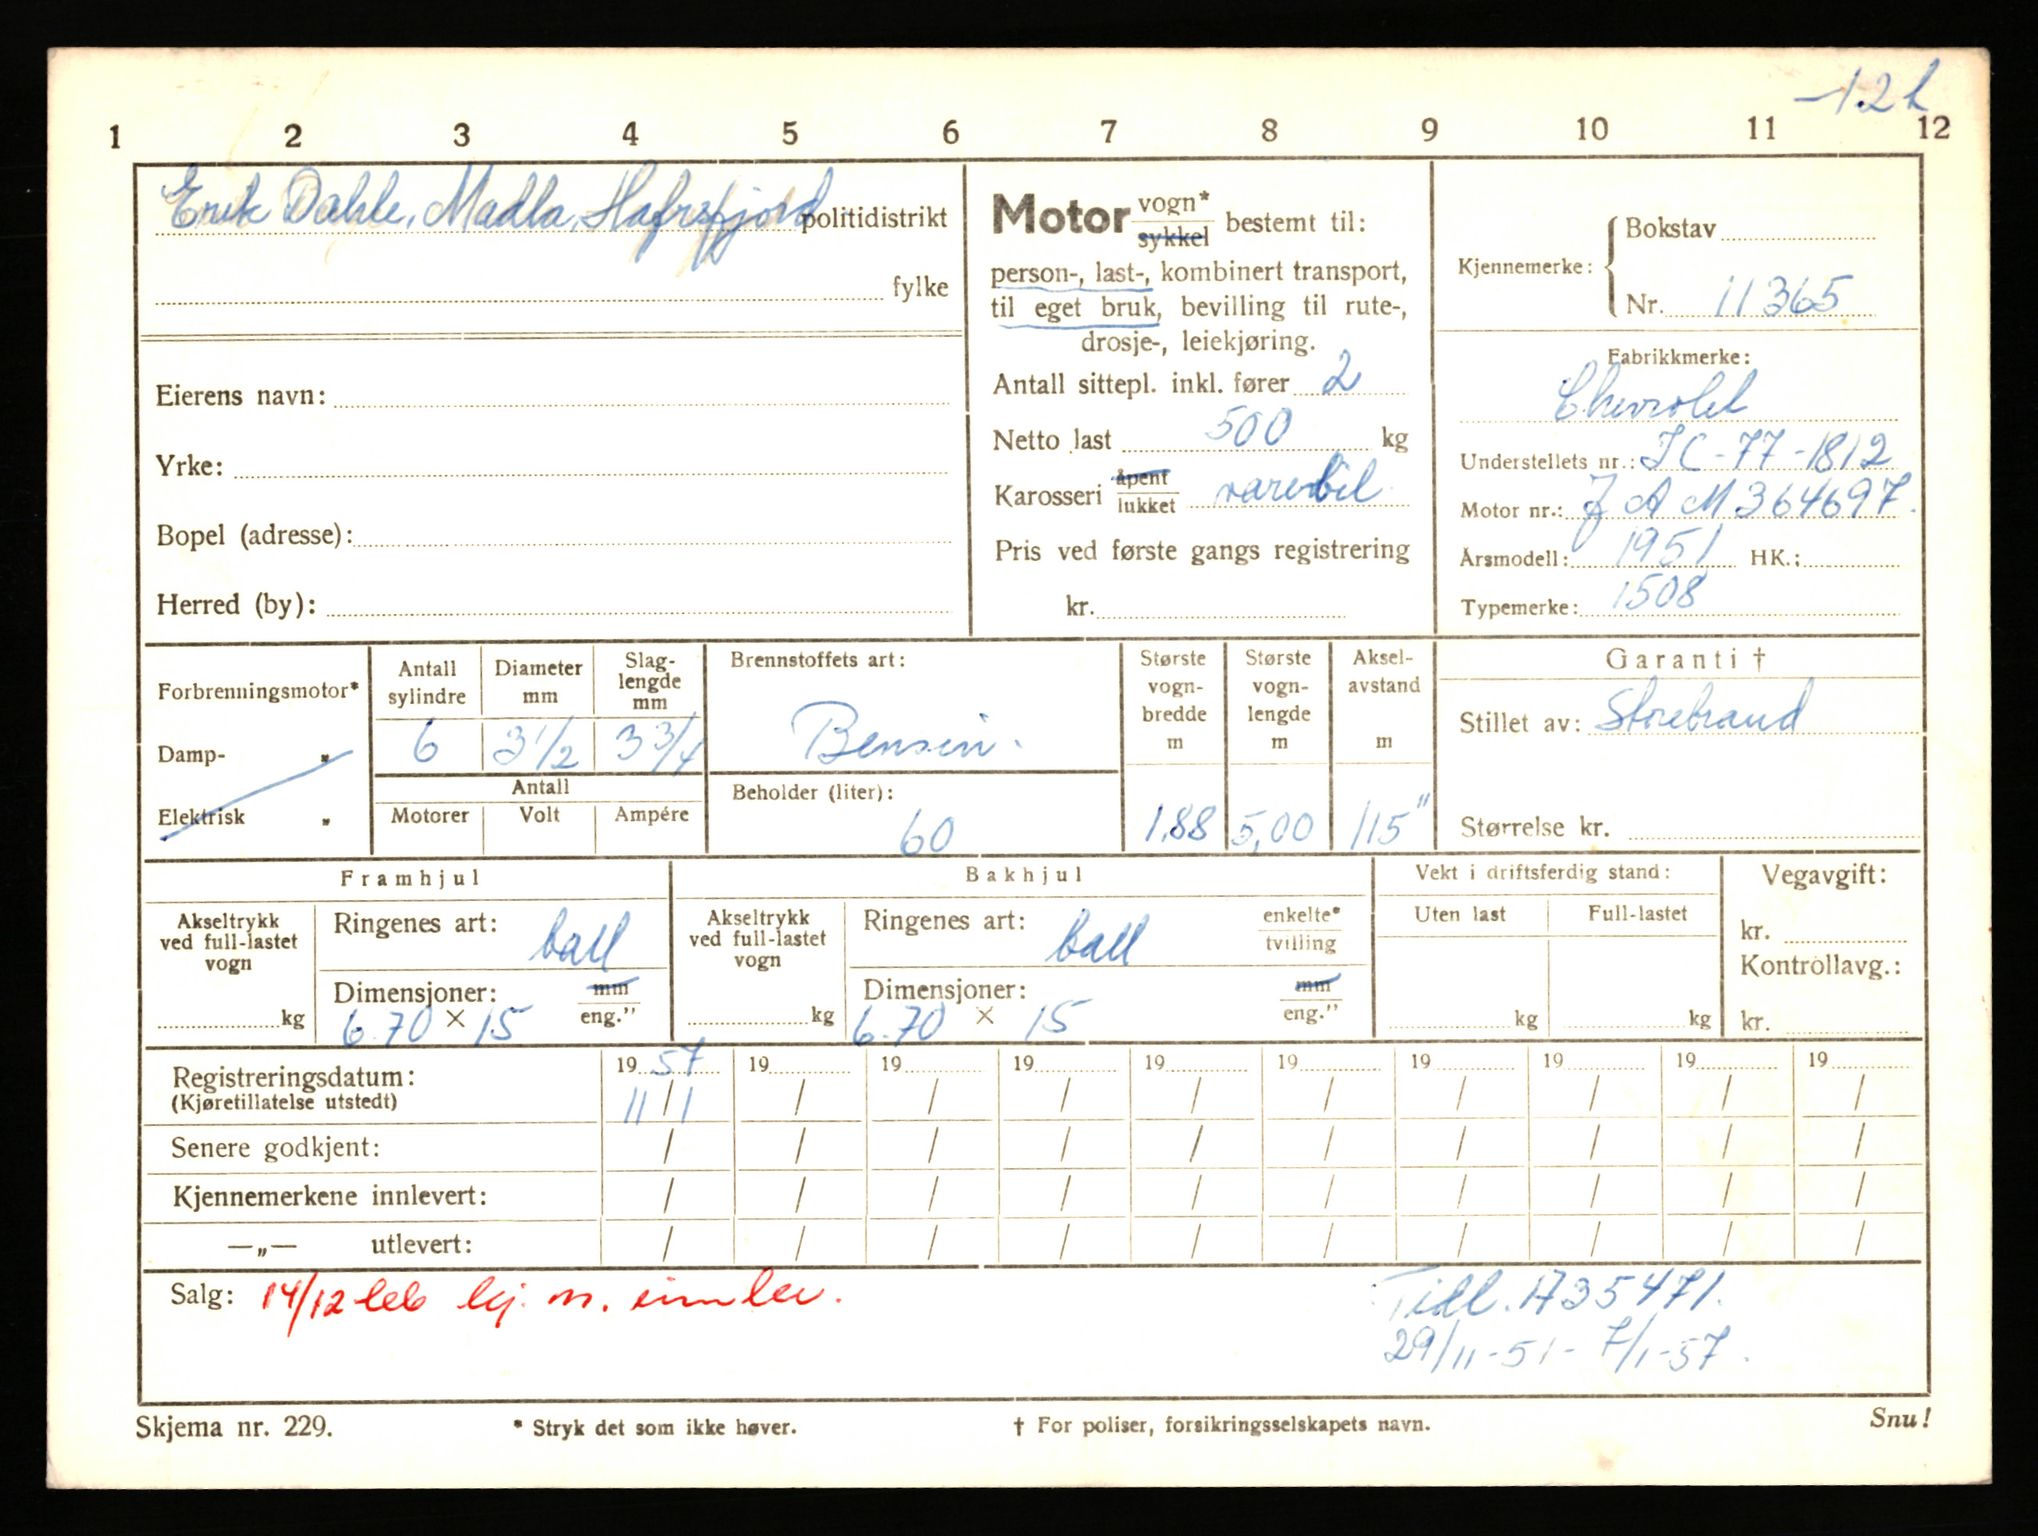 -12h
1 2 3 4 5 6 7 8 9 10 11 12
Erik Dahle, Madla, Hafrsfjord politidistrikt
fylke
Eierens navn:
Yrke:
Bopel (adresse):
Herred (by):
Motor vogn* sykkel bestemt til:
person-, last-, kombinert transport,
til eget bruk, bevilling til rute-,
drosje-, leiekjøring.
Antall sittepl. inkl. fører 2
Netto last 500 kg
Karosseri åpent lukket varebil
Pris ved første gangs registrering
kr.
Kjennemerke: Bokstav
Nr. 11365
Fabrikkmerke:
Chevrolet
Understellets nr.: JC-77-1812
Motor nr.: JAM 364697.
Årsmodell: 1951 HK.:
Typemerke: 1508
Forbrenningsmotor*
Damp- "
Elektrisk "
Antall sylindre
6
Diameter mm
3 1/2
Slag-lengde mm
3 3/4
Antall
Motorer Volt Ampére
Brennstoffets art:
Bensin.
Beholder (liter):
60
Største vogn-bredde m
1,88
Største vogn-lengde m
5,00
Aksel-avstand m
115"
Garanti †
Stillet av: Storebrand
Størrelse kr.
Framhjul
Akseltrykk ved full-lastet vogn
kg
Ringenes art: ball
Dimensjoner: mm
6.70 × 15 eng."
Bakhjul
Akseltrykk ved full-lastet vogn
kg
Ringenes art: ball enkelte* tvilling
Dimensjoner: mm
6.70 × 15 eng."
Vekt i driftsferdig stand:
Uten last Full-lastet
kg kg
Vegavgift:
kr.
Kontrollavg.:
kr.
Registreringsdatum: 19 57 19 19 19 19 19 19 19 19 19
(Kjøretillatelse utstedt) 11/1 / / / / / / / / /
Senere godkjent: / / / / / / / / / /
Kjennemerkene innlevert: / / / / / / / / / /
—„— utlevert: / / / / / / / / / /
Salg: 14/12 kj. m. innlev.
Tidl. A35471.
29/11-51 - 7/1-57.
Skjema nr. 229.
* Stryk det som ikke høver.
† For poliser, forsikringsselskapets navn.
Snu!